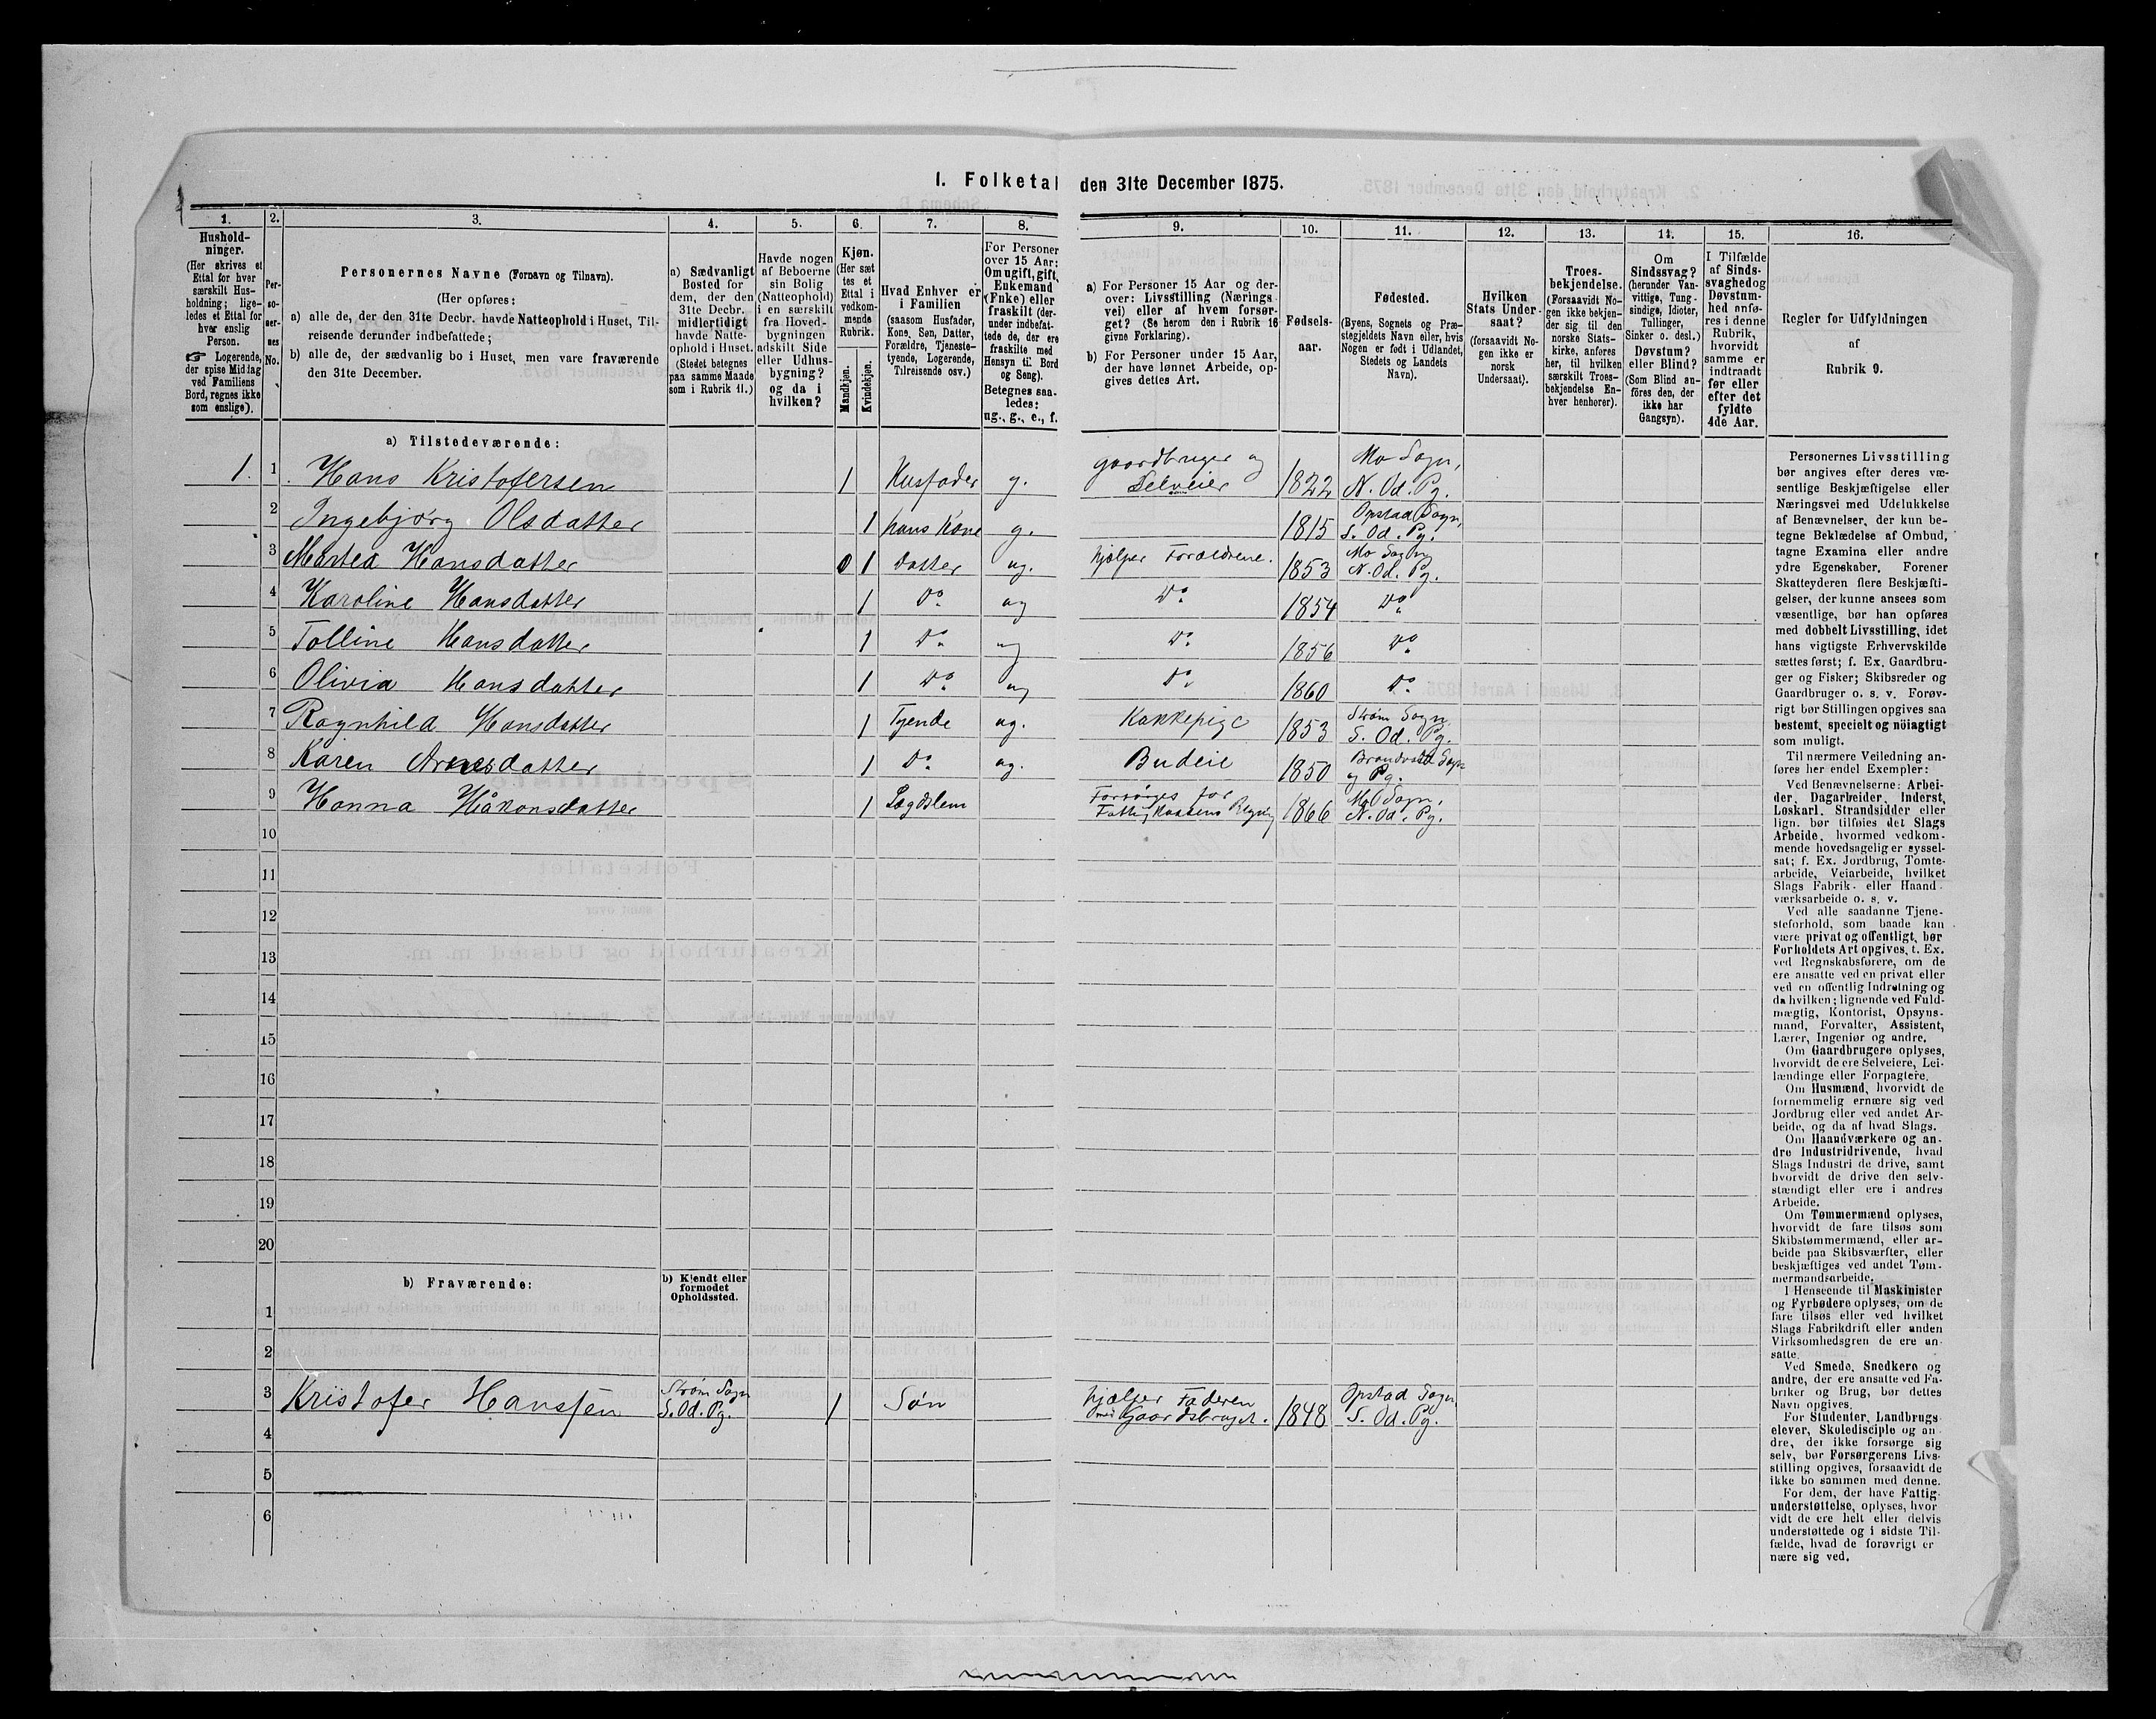 I. Folketal den 31te December 1875.
1. 2. 3. 4. 5. 6. 7. 8. 9. 10. 11. 12. 13. 14. 15. 16.
Hushold-
ninger.
(Her skrives et
Ettal for hver
særskilt Hus-
holdning; lige-
ledes et Ettal for
hver enslig
Person.
☞ Logerende,
der spise Middag
ved Familiens
Bord, regnes ikke
som enslige).
Per-
so-
ner-
nes
No.
Personernes Navne (Fornavn og Tilnavn).
(Her opføres:
a) alle de, der den 31te Decbr. havde Natteophold i Huset, Til-
reisende derunder indbefattede;
b) alle de, der sædvanlig bo i Huset, men vare fraværende
den 31te December.
a) Sædvanligt
Bosted for
dem, der den
31te Decbr.
midlertidigt
havde Natte-
ophold i Huset.
(Stedet betegnes
paa samme Maade
som i Rubrik 11.)
Havde nogen
af Beboerne
sin Bolig
(Natteophold)
i en særskilt
fra Hoved-
bygningen
adskilt Side
eller Udhus-
bygning?
og da i
hvilken?
Kjøn.
(Her sæt
tes et
Ettal i
vedkom-
mende
Rubrik.
Mandkjøn.
Kvindekjøn.
Hvad Enhver er
i Familien
(saasom Husfader,
Kone, Søn, Datter,
Forældre, Tjeneste-
tyende, Logerende,
Tilreisende osv.)
For Personer
over 15 Aar:
Om ugift, gift,
Enkemand
(Enke) eller
fraskilt (der-
under indbefat-
tede de, der ere
fraskilte med
Hensyn til Bord
og Seng).
Betegnes saa-
ledes:
ug., g., e., f.
a) For Personer 15 Aar og der-
over: Livsstilling (Nærings
vei) eller af hvem forsør-
get? (Se herom den i Rubrik 16
givne Forklaring).
b) For Personer under 15 Aar,
der have lønnet Arbeide, op-
gives dettes Art.
Fødsels-
aar.
Fødested.
(Byens, Sognets og Præ-
stegjeldets Navn eller, hvis
Nogen er født i Udlandet,
Stedets og Landets
Navn).
Hvilken
Stats Under-
saat?
(forsaavidt No-
gen ikke er
norsk
Undersaat).
Troes-
bekjendelse.
(Forsaavidt No-
gen ikke bekjen-
der sig til den
norske Stats-
kirke, anføres
her, til hvilken
særskilt Troes-
bekjendelse En-
hver henhører).
Om
Sindssvag?
(herunder Van-
vittige, Tung-
sindige, Idioter,
Tullinger,
Sinker o. desl.)
Døvstum?
eller Blind?
(Som Blind an-
føres den, der
ikke har
Gangsyn).
I Tilfælde
af Sinds-
svaghed og
Døvstum-
hed anfø-
res i denne
Rubrik,
hvorvidt
samme er
indtraadt
før eller
efter det
fyldte
4de Aar.
Regler for Udfyldningen
af
Rubrik 9.
a) Tilstedeværende:
1. 1 Hans Kristofersen 1 Husfader g. gaardbruger og Selveier 1822 Mo Sogn, N. Od. Pg.
2 Ingebjörg Olsdatter 1 hans Kone g. 1815 Opstad Sogn, S. Od. Pg.
3 Martea Hansdatter 0 1 Datter ug. hjelper Forældrene. 1853 Mo Sogn N. Od. Pg.
4 Karoline Hansdatter 1 Do ug Do 1854 Do
5 Tolline Hansdatter 1 Do ug Do 1856 Do
6 Olivia Hansdatter 1 Do ug Do 1860 Do
7 Ragnhild Hansdatter 1 Tyende ug. Kokkepige 1853 Strøm Sogn S. Od. Pg.
8 Karen Arnesdatter 1 Do ug. Budeie 1850 Brandvold Sogn og Pg.
9 Hanna Håkonsdatter 1 Lægdslem Forsörges for Fattigkassens Regning 1866 Mo Sogn, N. Od. Pg.
10
11
12
13
14
15
16
17
18
19
20
b) Fraværende:
b) Kjendt eller
formodet
Opholdssted.
1
2
3 Kristofer Hanssen Strøm Sogn S. Od. Pg. 1 Søn hjælper Faderen med Gaardsbruget. 1848 Opstad Sogn, S. Od. Pg.
4
5
6
Personernes Livsstilling
bør angives efter deres væ-
sentlige Beskjæftigelse eller
Næringsvei med Udelukkelse
af Benævnelser, der kun be-
tegne Beklædelse af Ombud,
tagne Examina eller andre
ydre Egenskaber. Forener
Skatteyderen flere Beskjæfti-
gelser, der kunne ansees som
væsentlige, bør han opføres
med dobbelt Livsstilling, idet
hans vigtigste Erhvervskilde
sættes først; f. Ex. Gaardbru-
ger og Fisker; Skibsreder og
Gaardbruger o. s. v. Forøv-
rigt bør Stillingen opgives saa
bestemt, specielt og nöiagtigt
som muligt.
Til nærmere Veiledning an-
føres her endel Exempler:
Ved Benævnelserne: Arbei-
der, Dagarbeider, Inderst,
Løskarl, Strandsidder eller
lign. bør tilføies det Slags
Arbeide, hvormed vedkom-
mende hovedsagelig er syssel-
sat; f. Ex. Jordbrug, Tomte-
arbeide, Veiarbeide, hvilket
Slags Fabrik- eller Haand-
værksarbeide o. s. v.
Ved alle saadanne Tjene-
steforhold, som baade kan
være privat og offentligt, bør
Forholdets Art opgives, t. Ex.
ved Regnskabsførere, om de
ere ansatte ved en privat eller
ved en offentlig Indretning og
da hvilken; lignende ved Fuld-
mægtig, Kontorist, Opsyns-
mand, Forvalter, Assistent,
Lærer, Ingeniør og andre.
Om Gaardbrugere oplyses,
hvorvidt de ere Selveiere, Lei-
lændinge eller Forpagtere.
Om Husmænd, hvorvidt de
fornemmelig ernære sig ved
Jordbrug eller ved andet Ar-
beide, og da af hvad Slags.
Om Haandværkere og an-
dre Industridrivende, hvad
Slags Industri de drive, samt
hvorvidt de drive den selv-
stændigt eller ere i andres
Arbeide.
Om Tømmermænd oplyses,
hvorvidt de fare tilsøs som
Skibstømmermænd, eller ar-
beide paa Skibsværfter, eller
beskjæftiges ved andet Tøm-
mermandsarbeide.
I Henseende til Maskinister
og Fyrbødere oplyses, om de
fare tilsøs eller ved hvilket
Slags Fabrikdrift eller anden
Virksomhedsgren de ere an-
satte.
Ved Smede, Snedkere og
andre, der ere ansatte ved Fa-
briker og Brug, bør dettes
Navn opgives.
For Studenter, Landbrugs-
elever, Skoledisciple og an-
dre, der ikke forsørge sig
selv, bør Forsørgerens Livs-
stilling opgives, forsaavidt de
ikke bo sammen med denne.
For dem, der have Fattig-
understøttelse, oplyses, hvor
vidt de ere helt eller delvis
understøttede og i sidste Til-
fælde, hvad de forøvrigt er
nære sig ved.